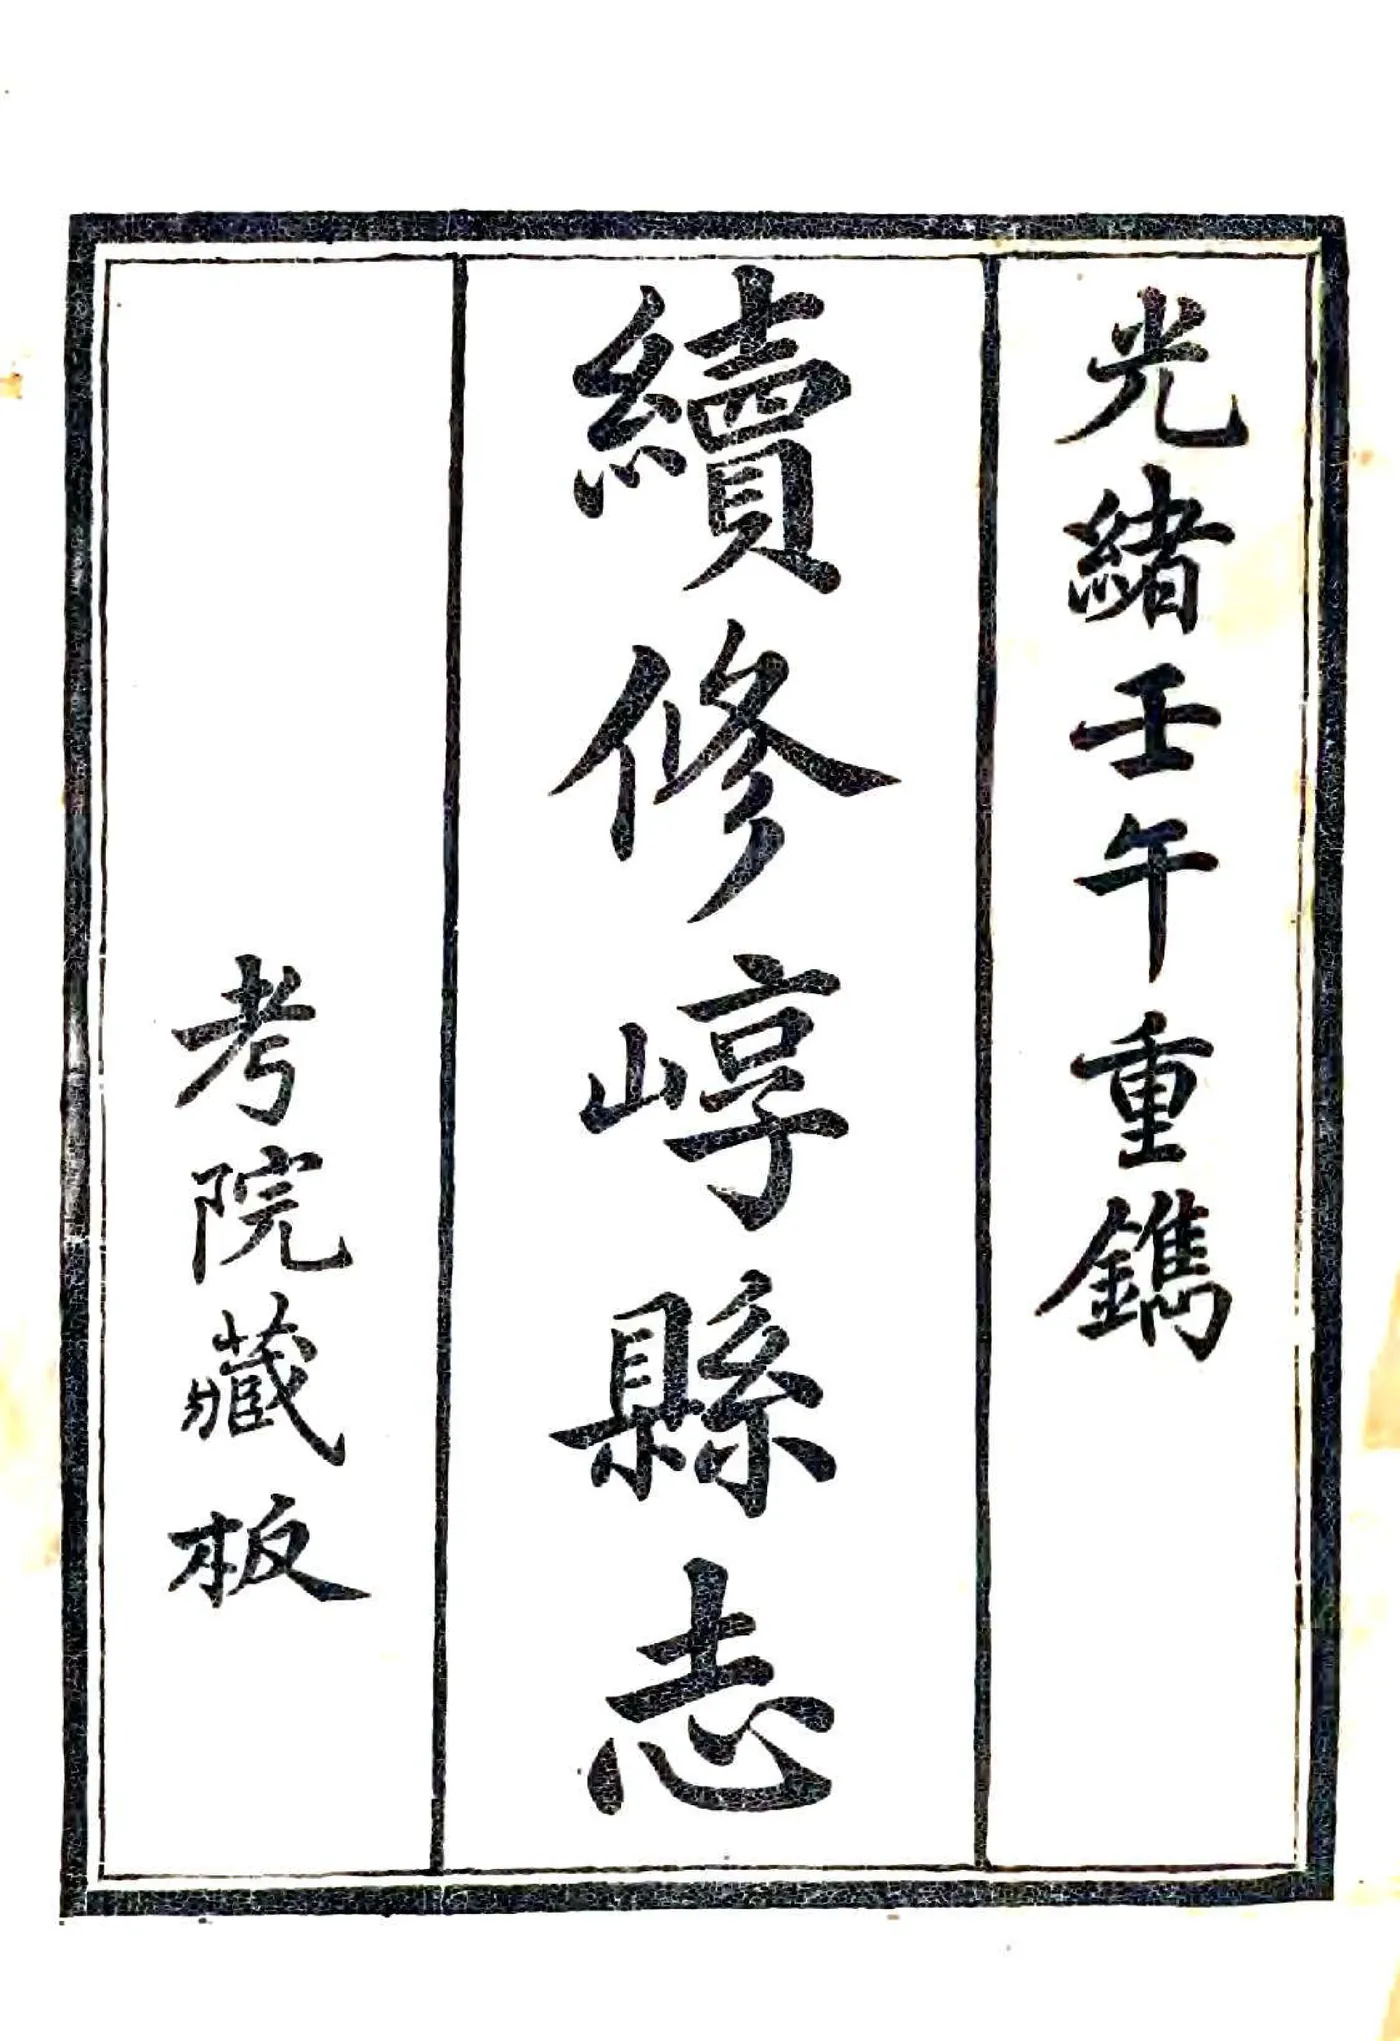 光緒壬午重鐫
續修崞縣志
考院藏板